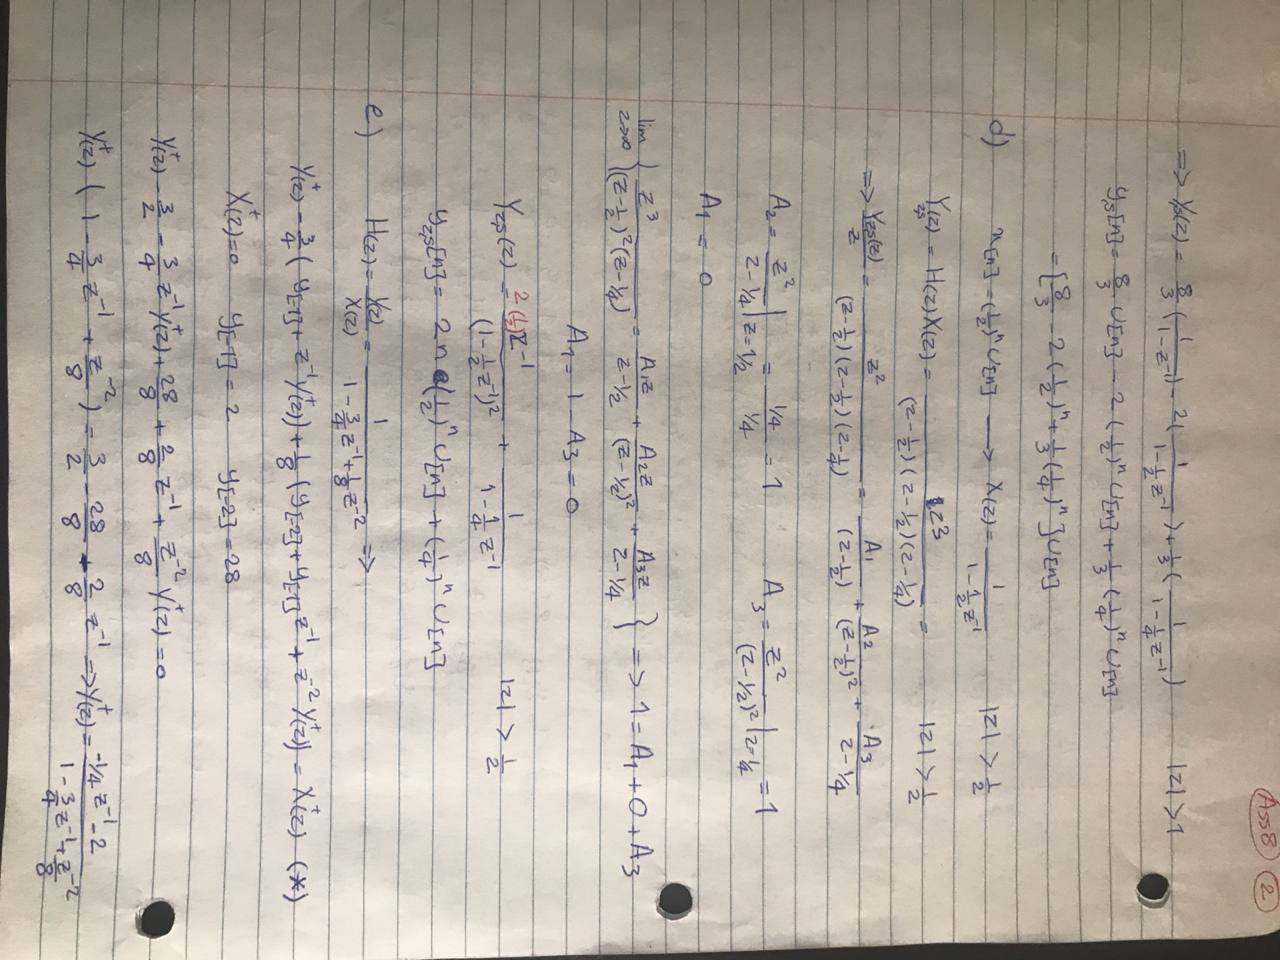 Ass8 ②
=> Ys(z) = 8/3 (1/(1-z^-1)) - 2(1/(1-1/2z^-1)) + 1/3(1/(1-1/4z^-1)) |z|>1
ys[n] = 8/3 u[n] - 2(1/2)^n u[n] + 1/3 (1/4)^n u[n]
= [8/3 - 2(1/2)^n + 1/3(1/4)^n] u[n]
d) x[n] = (1/2)^n u[n] → X(z) = 1/(1-1/2z^-1) |z|>1/2
Yzs(z) = H(z)X(z) = z^3/((z-1/2)(z-1/2)(z-1/4)) = |z|>1/2
=> Yzs(z)/z = z^2/((z-1/2)(z-1/2)(z-1/4)) = A1/(z-1/2) + A2/(z-1/2)^2 + A3/(z-1/4)
A2 = z^2/(z-1/4)|z=1/2 = (1/4)/(1/4) = 1 A3 = z^2/(z-1/2)^2|z=1/4 = 1
A1 = 0
lim z→∞ {z^3/((z-1/2)^2(z-1/4)) = A1z/(z-1/2) + A2z/(z-1/2)^2 + A3z/(z-1/4)} => 1 = A1 + 0 + A3
A1 = 1 - A3 = 0
Yzs(z) = 2(1/2)z^-1/(1-1/2z^-1)^2 + 1/(1-1/4z^-1) |z|>1/2
yzs[n] = 2n(1/2)^n u[n] + (1/4)^n u[n]
e) H(z) = Y(z)/X(z) = 1/(1-3/4z^-1+1/8z^-2) =>
Y+(z) - 3/4(y[-1] + z^-1Y+(z)) + 1/8(y[-2] + y[-1]z^-1 + z^-2Y+(z)) = X+(z) (*)
X+(z)=0 y[-1] = 2 y[-2] = 28
Y+(z) - 3/2 - 3/4 z^-1Y+(z) + 28/8 + 2/8 z^-1 + z^-2/8 Y+(z) = 0
Y+(z) (1 - 3/4 z^-1 + z^-2/8) = 3/2 - 28/8 - 2/8 z^-1 => Y+(z) = (-1/4z^-1 - 2)/(1 - 3/4z^-1 + z^-2/8)